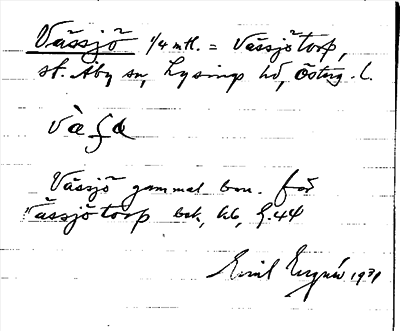 Vässjö 1/4 mtl. = Vässjötorp,
st. Åby sn, Lysings hd, Östg. l.
Vässjö gammal ben. för
Vässjötorp bek, kb,
Emil 1931